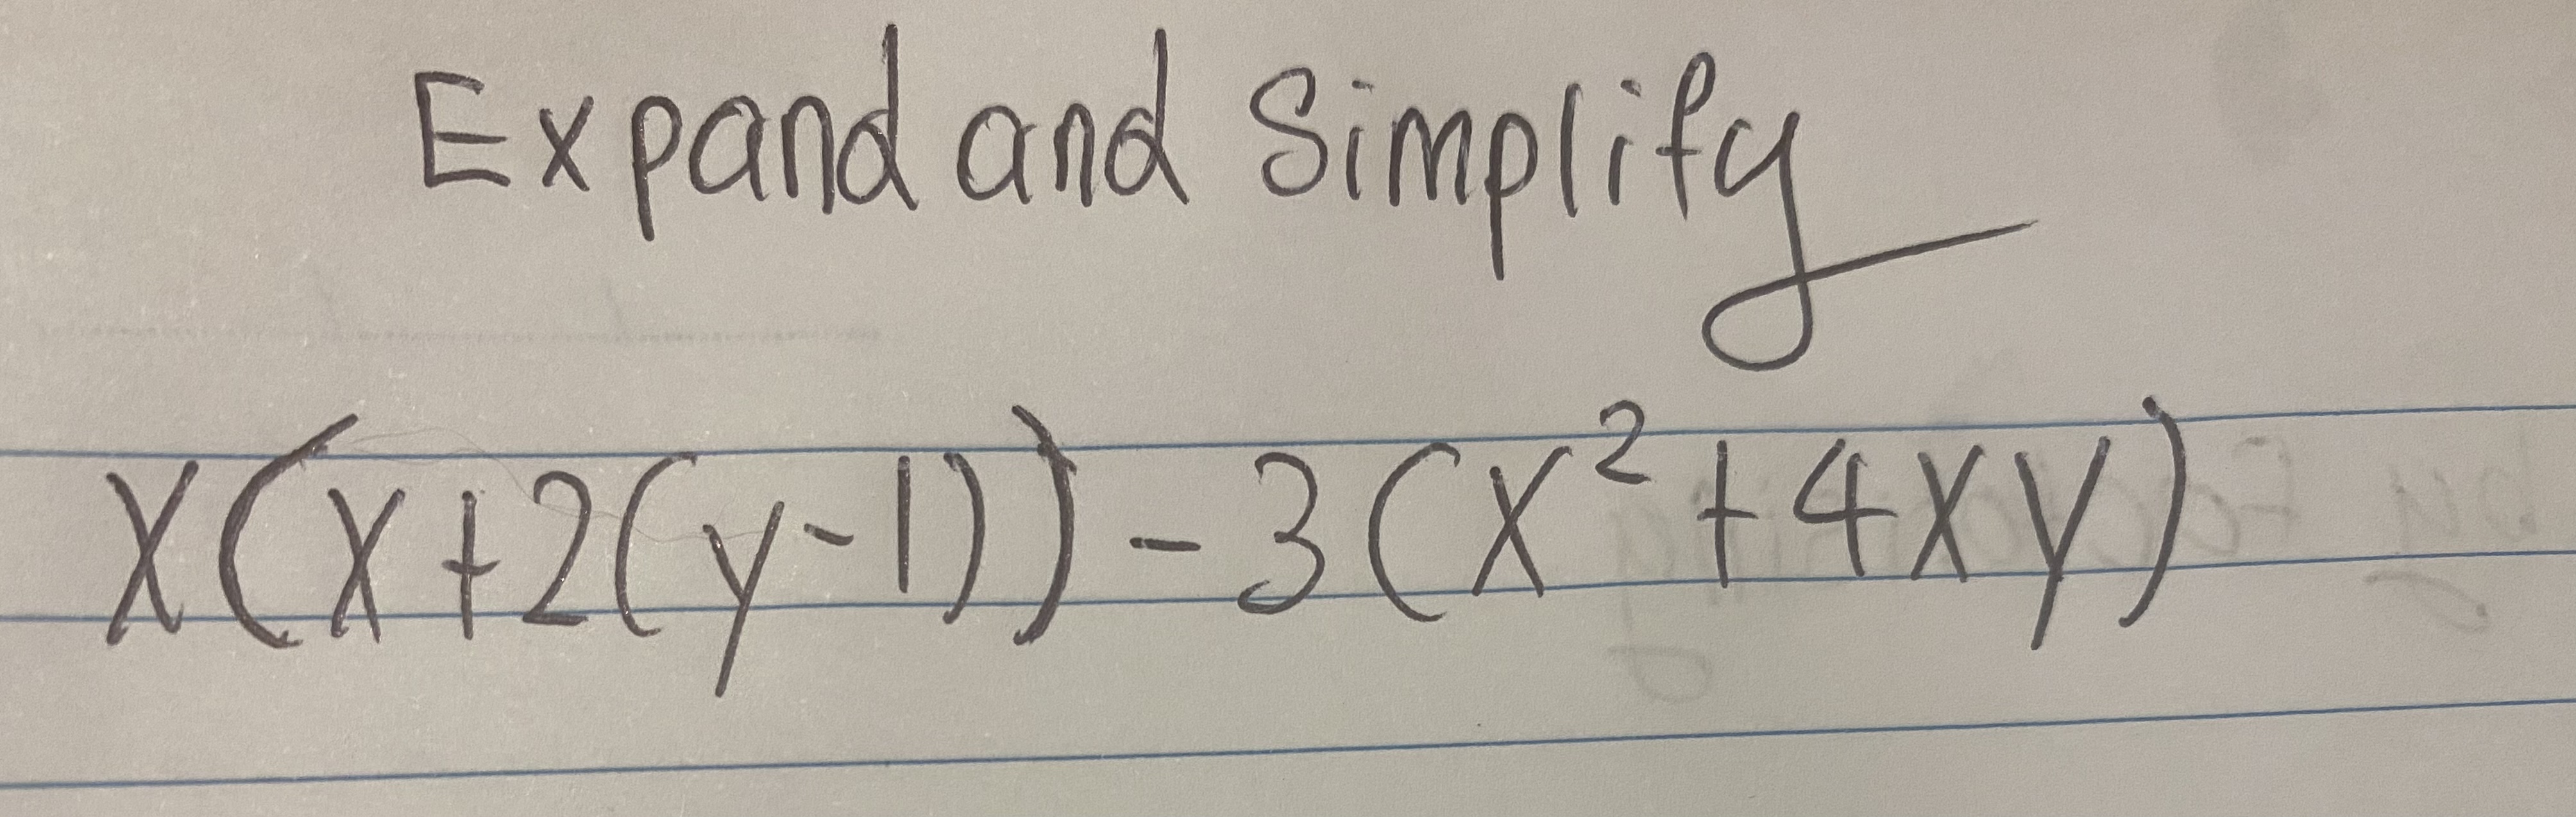 Expand and Simplify
x(x+2(y-1))-3(x²+4xy)